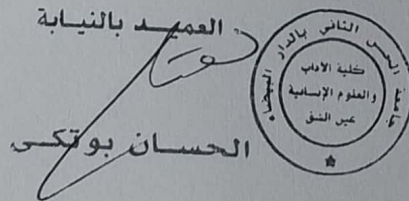 العميد بالنيابة
الحسان بوتكى
جامعة الحسن الثاني بالدار البيضاء
كلية الآداب
والعلوم الإنسانية
عين الشق